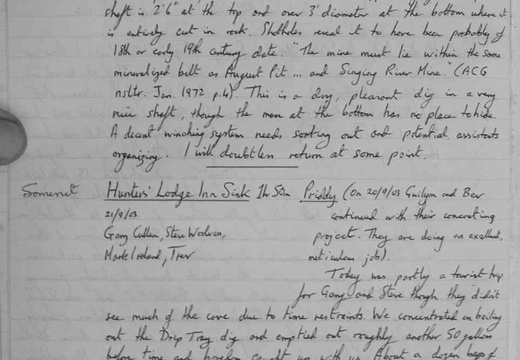 shaft is 2'6" at the top and over 3' diameter at the bottom where it
is entirely cut in rock. Shotholes reveal it to have been probably of
18th or early 19th century date. "The mine must lie within the same
mineralized belt as August Pit ... and Singing River Mine." (ACG
nsltr. Jan. 1972 p.4) This is a dry, pleasant dig in a very
nice shaft, though the man at the bottom has no place to hide.
A decent winching system needs sorting out and potential assistants
organizing. I will doubtless return at some point.
Somerset Hunters' Lodge Inn Sink 1h 50m Priddy (On 20/9/03 Guilym and Bev
21/9/03 continued with their concreting
Gary Cullen, Steve Woolven, project. They are doing an excellent,
Mark Ireland, Trev meticulous job).
Today was partly a tourist trip
for Gary and Steve though they didn't
see much of the cave due to time restraints. We concentrated on bailing
out the Drip Tray dig and emptied out roughly another 50 gallons
before time and boredom caught up with us. About a dozen bags of